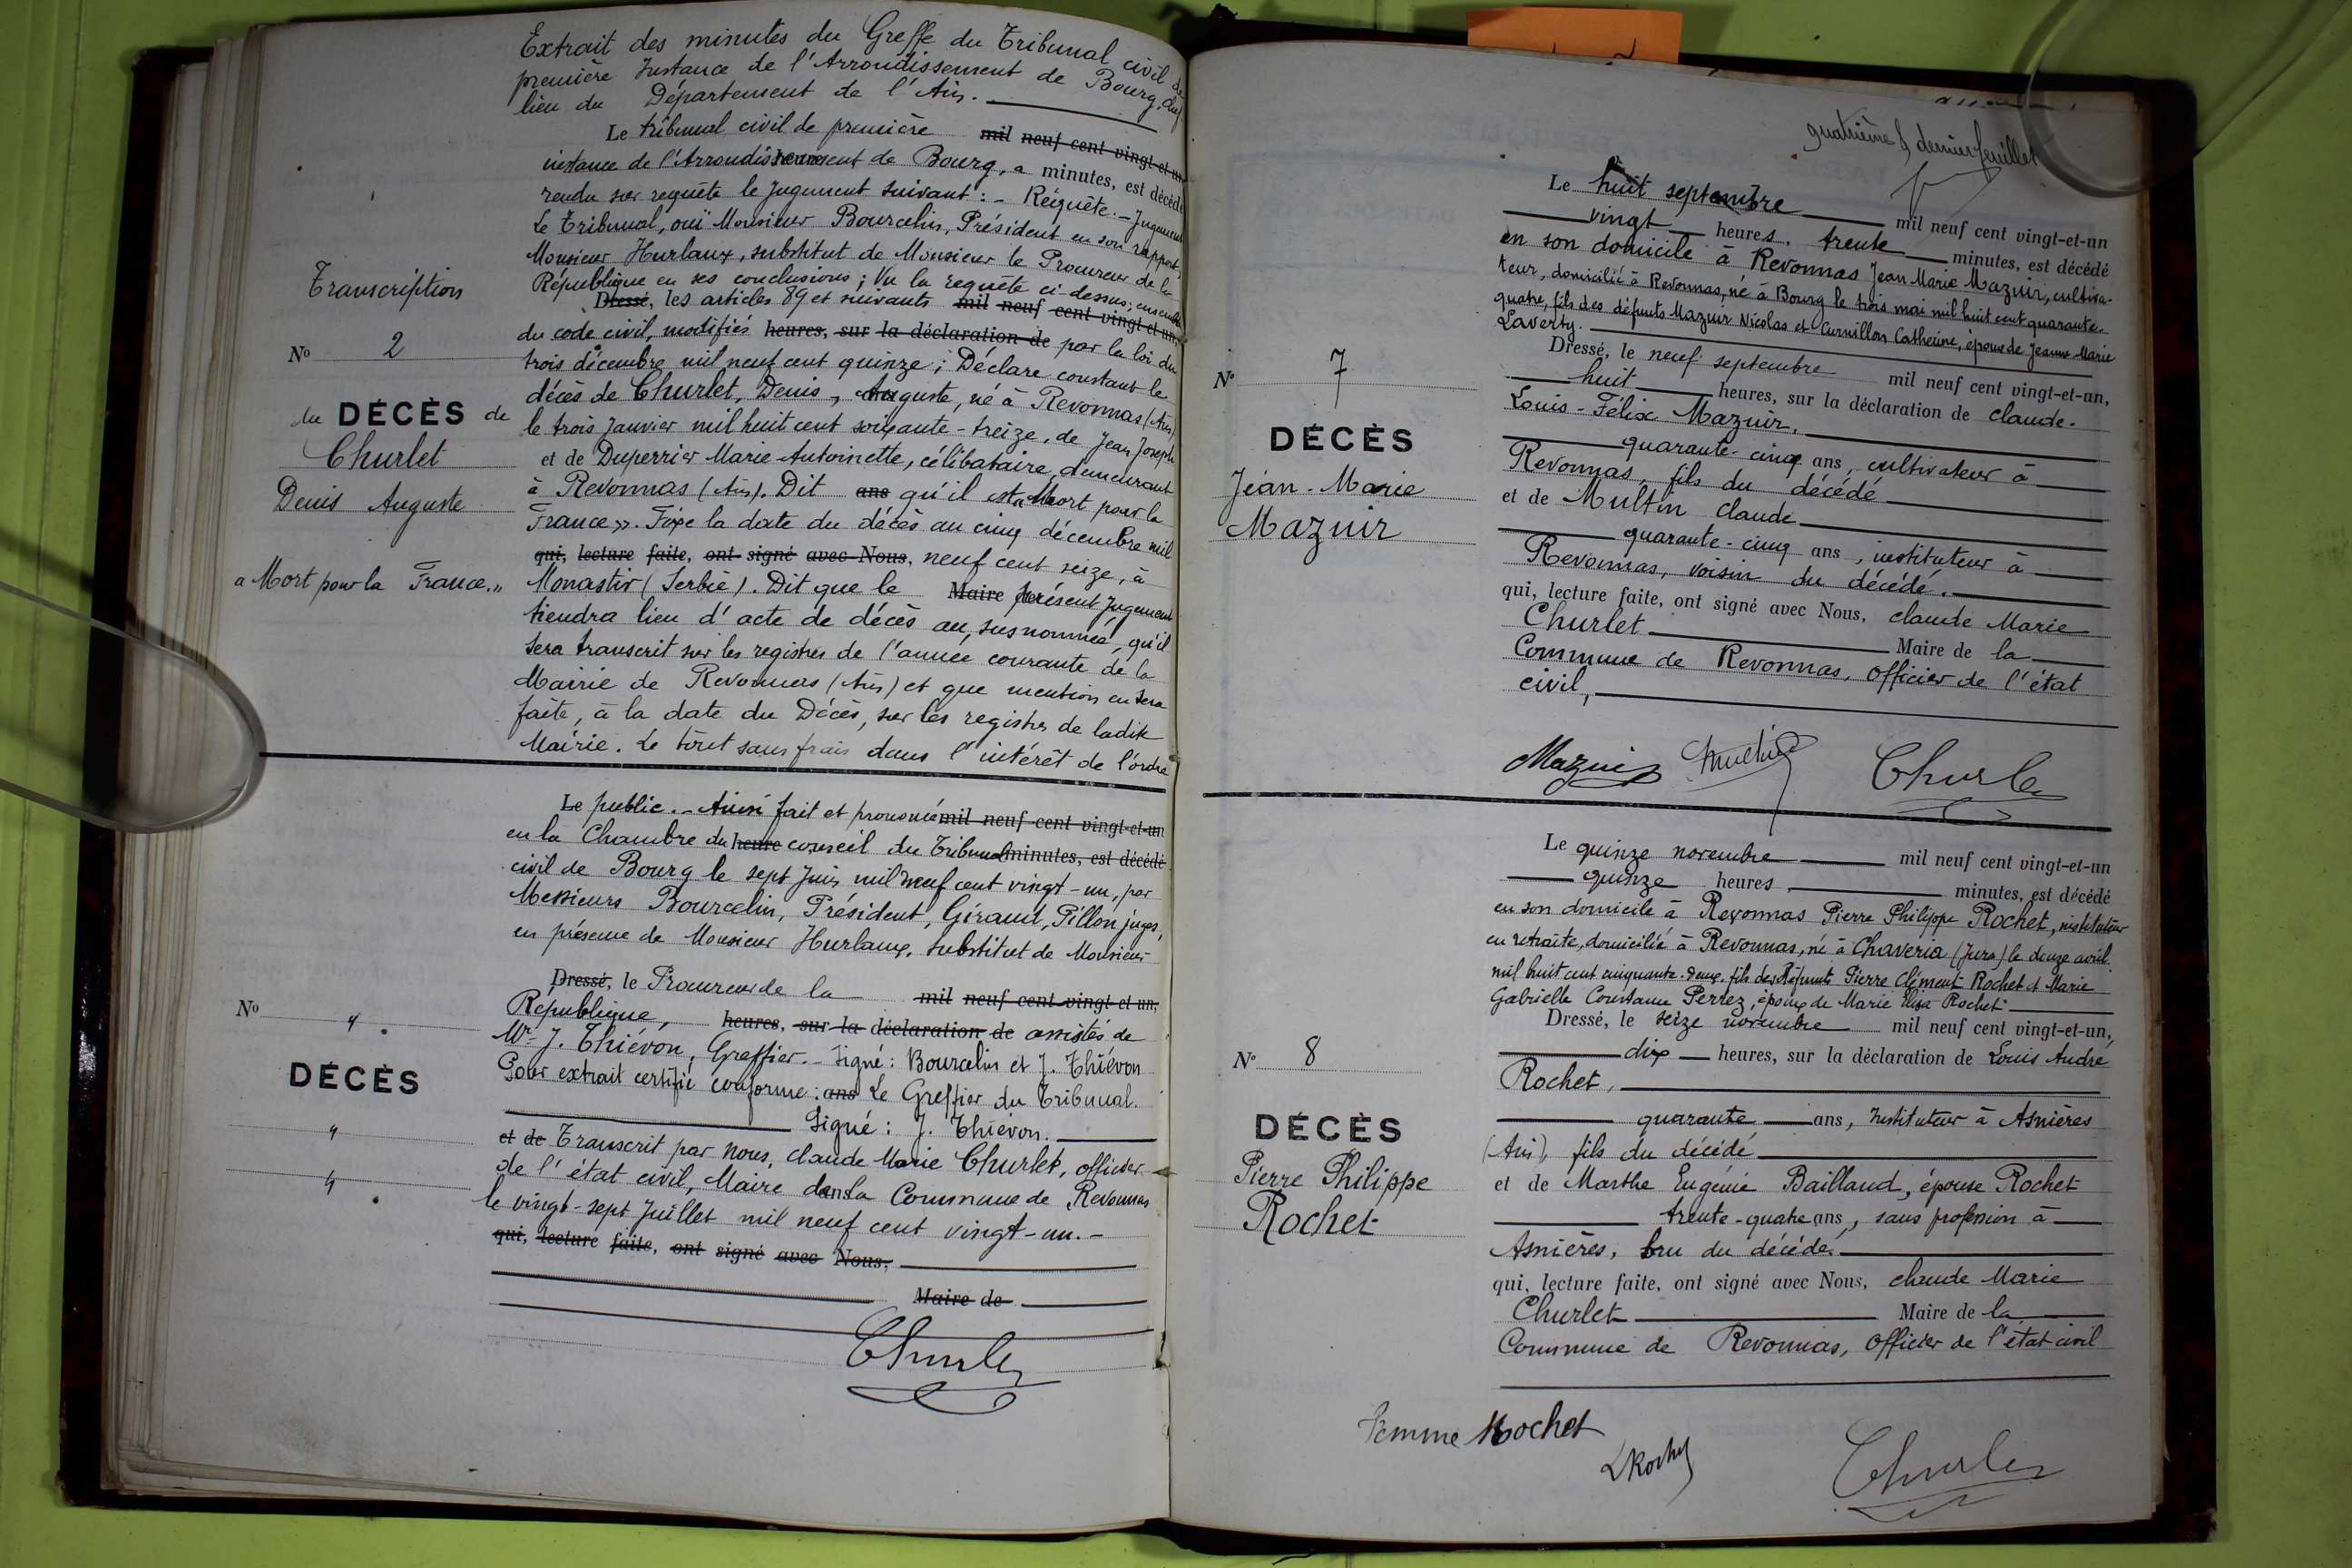 Extrait des minutes du Greffe du Tribunal civil de
première Instance de l'Arrondissement de Bourg, chef
lieu du Département de l'Ain.
Le tribunal civil de première mil neuf cent vingt-et-un
instance de l'Arrondissement de Bourg, a minutes, est décédé
rendu sur requête le Jugement suivant : - Réquête. - Jugement
Le Tribunal, ouï Monsieur Bourcelin, Président en son rapport,
Monsieur Hurlaux, substitut de Monsieur le Procureur de la
République en ses conclusions ; Vu la requête ci-dessus, ensemble
Dressé, les articles 89 et suivants mil neuf cent vingt-et-un,
du code civil, modifiés heures, sur la déclaration de par la loi du
trois décembre mil neuf cent quinze ; Déclare constant le
décès de Churlet, Denis, Auguste, né à Revonnas (Ain)
le trois Janvier mil huit cent soixante-treize, de Jean Joseph
et de Duperrier Marie Antoinette, célibataire, demeurant
à Revonnas (Ain). Dit ans qu'il est « Mort pour la
France ». Fixe la date du décès au cinq décembre mil
qui, lecture faite, ont signé avec Nous, neuf cent seize, à
Monastir (Serbie). Dit que le Maire de présent Jugement
tiendra lieu d'acte de décès au susnommé, qu'il
sera transcrit sur les registres de l'année courante de la
Mairie de Revonnas (Ain) et que mention en sera
faite, à la date du Décès, sur les registres de ladite
Mairie. Le tout sans frais dans l'intérêt de l'ordre
Transcription
No 2
du DÉCÈS de
Churlet
Denis Auguste
« Mort pour la France. »
Le public. - Ainsi fait et prononcé mil neuf cent vingt-et-un
en la Chambre du heure conseil du Tribunal minutes, est décédé
civil de Bourg le sept Juin mil neuf cent vingt-un, par
Messieurs Bourcelin, Président, Giraud, Pillon juges,
en présence de Monsieur Hurlaux, substitut de Monsieur
Dressé, le Procureur de la mil neuf cent vingt-et-un,
République, heures, sur la déclaration de assistés de
Mr J. Thiévon, Greffier. - Signé : Bourcelin et J. Thiévon
Pour extrait certifié conforme : ans Le Greffier du Tribunal.
Signé : J. Thiévon.
et de Transcrit par nous, Claude Marie Churlet, officier
de l'état civil, Maire dans la Commune de Revonnas
le vingt-sept Juillet mil neuf cent vingt-un. -
qui, lecture faite, ont signé avec Nous,
Maire de
Churlet
No "
DÉCÈS
"
"
quatrième & dernier feuillet
Le huit septembre mil neuf cent vingt-et-un
vingt heures, trente minutes, est décédé
en son domicile à Revonnas Jean Marie Mazuir, cultiva-
teur, domicilié à Revonnas, né à Bourg le trois mai mil huit cent quarante-
quatre, fils des défunts Mazuir Nicolas et Curnillon Catherine, époux de Jeanne Marie
Laverty.
Dressé, le neuf septembre mil neuf cent vingt-et-un,
huit heures, sur la déclaration de Claude-
Louis-Félix Mazuir,
quarante-cinq ans, cultivateur à
Revonnas, fils du décédé
et de Multin Claude
quarante-cinq ans, instituteur à
Revonnas, voisin du décédé.
qui, lecture faite, ont signé avec Nous, Claude Marie
Churlet Maire de la
Commune de Revonnas, Officier de l'état
civil,
Mazuir Multin Churlet
No 7
DÉCÈS
Jean-Marie
Mazuir
Le quinze novembre mil neuf cent vingt-et-un
quinze heures minutes, est décédé
en son domicile à Revonnas Pierre Philippe Rochet, instituteur
en retraite, domicilié à Revonnas, né à Chaveria (Jura) le douze avril
mil huit cent cinquante-deux, fils des défunts Pierre Clément Rochet et Marie
Gabrielle Constance Perrez, époux de Marie Elisa Rochet
Dressé, le seize novembre mil neuf cent vingt-et-un,
dix heures, sur la déclaration de Louis André
Rochet,
quarante ans, Instituteur à Asnières
(Ain), fils du décédé
et de Marthe Eugénie Bailland, épouse Rochet
trente-quatre ans, sans profession à
Asnières, bru du décédé.
qui, lecture faite, ont signé avec Nous, Claude Marie
Churlet Maire de la
Commune de Revonnas, Officier de l'état civil
No 8
DÉCÈS
Pierre Philippe
Rochet
Femme Rochet
LRochet
Churlet